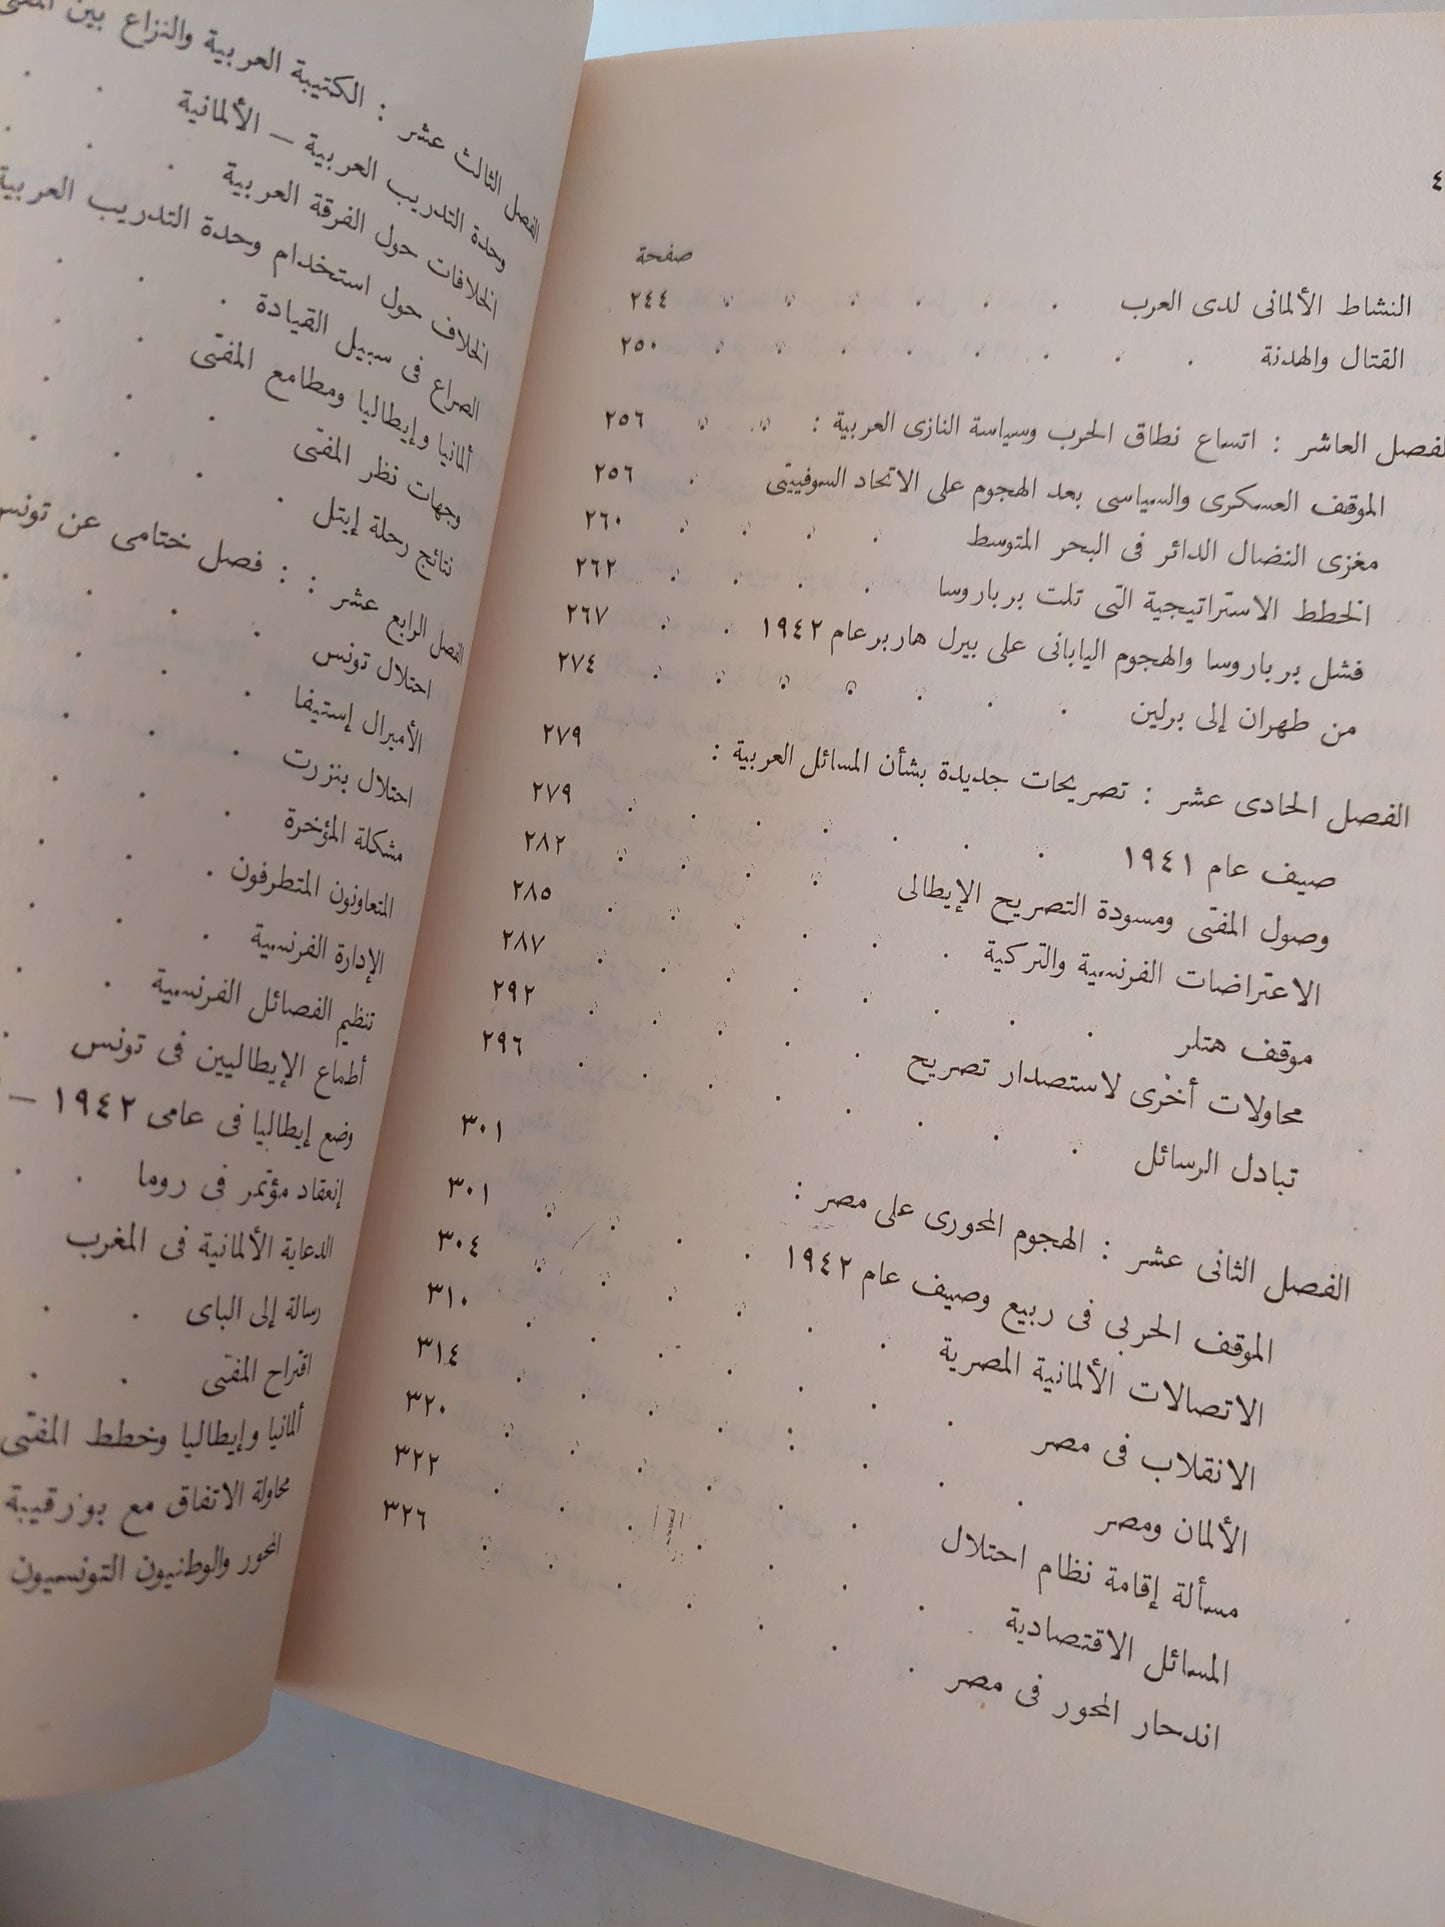 ٤
صفحة
النشاط الألمانى لدى العرب . . . . . . ٢٤٤
القتال والهدنة . . . . . . . . ٢٥٠
الفصل العاشر : اتساع نطاق الحرب وسياسة النازى العربية : . . ٢٥٦
الموقف العسكرى والسياسى بعد الهجوم على الاتحاد السوفييتى . ٢٥٦
مغزى النضال الدائر فى البحر المتوسط . . . . ٢٦٠
الخطط الاستراتيجية التى تلت برباروسا . . . . ٢٦٢
فشل برباروسا والهجوم اليابانى على بيرل هاربر عام ١٩٤٢ . . ٢٦٧
من طهران إلى برلين . . . . . . . ٢٧٤
الفصل الحادى عشر : تصريحات جديدة بشأن المسائل العربية : ٢٧٩
صيف عام ١٩٤١ . . . . . . . ٢٧٩
وصول المفتى ومسودة التصريح الإيطالى . . . . ٢٨٢
الاعتراضات الفرنسية والتركية . . . . . . ٢٨٥
موقف هتلر . . . . . . . . ٢٨٧
محاولات أخرى لاستصدار تصريح . . . . . ٢٩٢
تبادل الرسائل . . . . . . . . ٢٩٦
الفصل الثانى عشر : الهجوم المحورى على مصر : ٣٠١
الموقف الحربى فى ربيع وصيف عام ١٩٤٢ . . . . ٣٠١
الاتصالات الألمانية المصرية . . . . . . ٣٠٤
الانقلاب فى مصر . . . . . . . ٣١٠
الألمان ومصر . . . . . . . . ٣١٤
مسألة إقامة نظام احتلال . . . . . . ٣٢٠
المسائل الاقتصادية . . . . . . . ٣٢٢
اندحار المحور فى مصر . . . . . . . ٣٢٦
الفصل الثالث عشر : الكتيبة العربية والنزاع بين المفتى
وحدة التدريب العربية – الألمانية
الخلافات حول الفرقة العربية
الخلاف حول استخدام وحدة التدريب العربية
الصراع فى سبيل القيادة
ألمانيا وإيطاليا ومطامع المفتى
وجهات نظر المفتى
نتائج رحلة إيتل
الفصل الرابع عشر : : فصل ختامى عن تونس
احتلال تونس
الأميرال إستيفا
احتلال بنزرت
مشكلة المؤخرة
المتعاونون المتطرفون
الإدارة الفرنسية
تنظيم الفصائل الفرنسية
أطماع الإيطاليين فى تونس
وضع إيطاليا فى عامى ١٩٤٢ –
إنعقاد مؤتمر فى روما
الدعاية الألمانية فى المغرب
رسالة إلى الباى
اقتراح المفتى
ألمانيا وإيطاليا وخطط المفتى
محاولة الاتفاق مع بورقيبة
المحور والوطنيون التونسيون